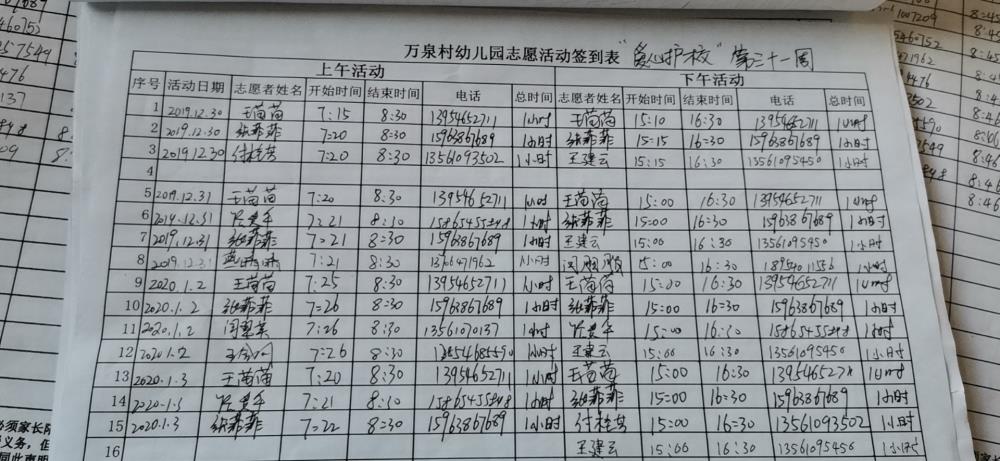 万泉村幼儿园志愿活动签到表 "爱心护校" 第三十一周
上午活动 下午活动
序号 活动日期 志愿者姓名 开始时间 结束时间 电话 总时间 志愿者姓名 开始时间 结束时间 电话 总时间
1 2019.12.30 王苗苗 7:15 8:30 13954652711 1小时 王苗苗 15:10 16:30 13954652711 1小时
2 2019.12.30 张菲菲 7:20 8:30 15963867689 1小时 张菲菲 15:15 16:30 15963867689 1小时
3 2019.12.30 付桂芳 7:20 8:30 13561093502 1小时 王建云 15:15 16:30 13561095450 1小时
4
5 2019.12.31 王苗苗 7:20 8:30 13954652711 1小时 王苗苗 15:00 16:30 13954652711 1小时
6 2019.12.31 7:21 8:10 1小时 张菲菲 15:00 16:30 15963867689 1小时
7 2019.12.31 张菲菲 7:21 8:30 15963867689 1小时 王建云 15:00 16:30 13561095450 1小时
8 2019.12.31 7:21 8:30 1小时 15:00 16:30 1小时
9 2020.1.2 王苗苗 7:25 8:30 13954652711 1小时 王苗苗 15:00 16:30 13954652711 1小时
10 2020.1.2 张菲菲 7:26 8:30 15963867689 1小时 张菲菲 15:00 16:30 15963867689 1小时
11 2020.1.2 7:26 8:30 13561070137 1小时 15:00 16:10 1小时
12 2020.1.2 7:26 8:30 1小时 王建云 15:00 16:30 13561095450 1小时
13 2020.1.3 王苗苗 7:20 8:30 13954652711 1小时 王苗苗 15:00 16:30 1小时
14 2020.1.3 7:21 8:10 1小时 张菲菲 15:00 16:30 15963867689 1小时
15 2020.1.3 张菲菲 7:22 8:30 15963867689 1小时 付桂芳 15:00 16:30 13561093502 1小时
16 王建云 15:00 16:30 13561095450 1小时